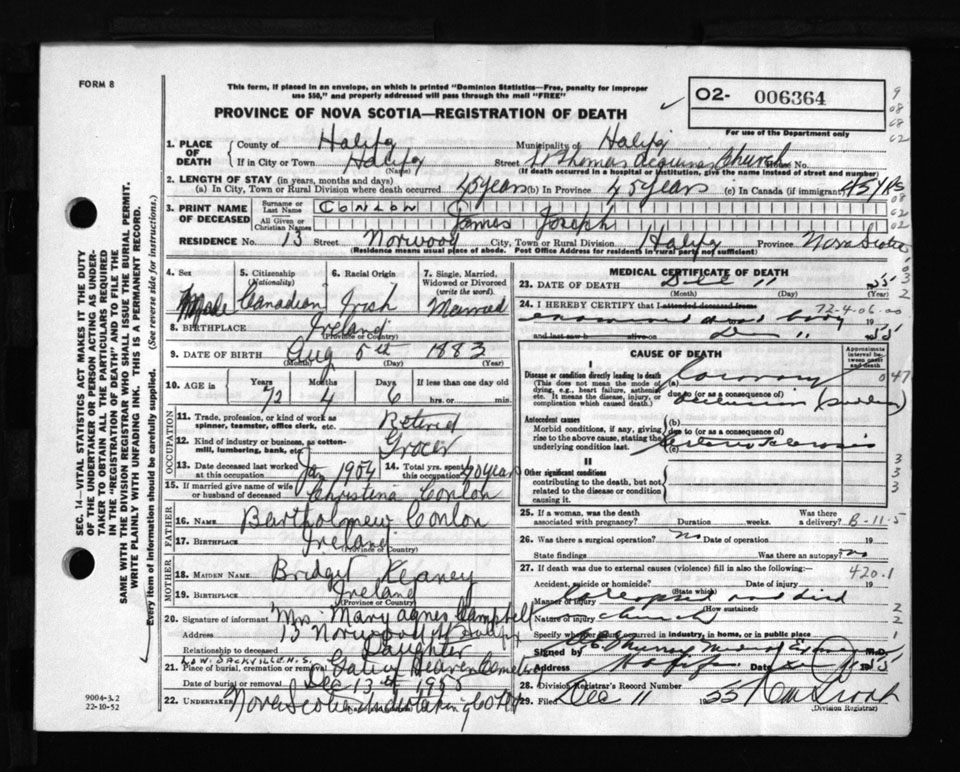 FORM 8
This form, if placed in an envelope, on which is printed "Dominion Statistics—Free, penalty for improper
use $50," and properly addressed will pass through the mail "FREE"
PROVINCE OF NOVA SCOTIA—REGISTRATION OF DEATH
O2- 006364
For use of the Department only
1. PLACE OF DEATH
County of Halifax Municipality of Halifax
If in City or Town Halifax (Name) Street St Thomas Acquinas Church House No.
(If death occurred in a hospital or institution, give the name instead of street and number)
2. LENGTH OF STAY (in years, months and days)
(a) In City, Town or Rural Division where death occurred 45 years (b) In Province 45 years (c) In Canada (if immigrant) 45 YRS
3. PRINT NAME OF DECEASED
Surname or Last Name CONLON
All Given or Christian Names James Joseph
RESIDENCE No. 13 Street Norwood City, Town or Rural Division Halifax Province Nova Scotia
Residence means usual place of abode. Post Office Address for residents in rural parts not sufficient)
4. Sex
Male
5. Citizenship (Nationality)
Canadian
6. Racial Origin
Irish
7. Single, Married, Widowed or Divorced (write the word)
Married
8. BIRTHPLACE Ireland
(Province or Country)
9. DATE OF BIRTH Aug 5th 1883
(Month) (Day) (Year)
10. AGE in Years 72 Months 4 Days 6 If less than one day old
hrs. or min.
OCCUPATION
11. Trade, profession, or kind of work as spinner, teamster, office clerk, etc. Retired
12. Kind of industry or business, as cotton-mill, lumbering, bank, etc. Grocer
13. Date deceased last worked at this occupation Jan 1954 14. Total yrs. spent at this occupation years
15. If married give name of wife or husband of deceased Christina Conlon
FATHER
16. NAME Bartholomew Conlon
17. BIRTHPLACE Ireland
(Province or Country)
MOTHER
18. MAIDEN NAME Bridget Keaney
19. BIRTHPLACE Ireland
(Province or Country)
20. Signature of informant Mrs. Mary Agnes Campbell
Address 13 Norwood St Halifax
Relationship to deceased Daughter
LOW. SACKVILLE. N.S.
21. Place of burial, cremation or removal Gate of Heaven Cemetery
Date of burial or removal Dec 13th 1955
22. UNDERTAKER Nova Scotia Undertaking Co Ltd
MEDICAL CERTIFICATE OF DEATH
23. DATE OF DEATH Dec 11 1955
(Month) (Day)
24. I HEREBY CERTIFY that I attended deceased from 72-4-06-00
examined dead body 19
and last saw h alive on Dec 11 1955
CAUSE OF DEATH
Approximate interval between onset and death
I
Disease or condition directly leading to death
(This does not mean the mode of dying, e.g., heart failure, asthenia, etc. It means the disease, injury, or complication which caused death.)
(a) Coronary
due to (or as a consequence of)
occlusion (sudden)
Antecedent causes
Morbid conditions, if any, giving rise to the above cause, stating the underlying condition last.
(b)
due to (or as a consequence of)
(c) Arterio Sclerosis
II
Other significant conditions
contributing to the death, but not related to the disease or condition causing it.
25. If a woman, was the death associated with pregnancy? Duration weeks. Was there a delivery? B-11-5
26. Was there a surgical operation? no Date of operation 19
State findings Was there an autopsy? no
27. If death was due to external causes (violence) fill in also the following: 420.1
Accident, suicide or homicide? Date of injury 19
(State which)
Manner of injury Collapsed and died
(How sustained)
Nature of injury church
Specify whether injury occurred in industry, in home, or in public place
Signed by Murray Medical Examiner M.D.
Address Halifax Date Dec 1955
28. Division Registrar's Record Number
29. Filed Dec 11 1955
(Division Registrar)
SEC. 14—VITAL STATISTICS ACT MAKES IT THE DUTY
OF THE UNDERTAKER OR PERSON ACTING AS UNDER-
TAKER TO OBTAIN ALL THE PARTICULARS REQUIRED
IN THE "REGISTRATION OF DEATH" AND TO FILE THE
SAME WITH THE DIVISION REGISTRAR WHO SHALL ISSUE THE BURIAL PERMIT.
WRITE PLAINLY WITH UNFADING INK. THIS IS A PERMANENT RECORD.
Every item of information should be carefully supplied. (See reverse side for instructions.)
9004-3.2
22-10-52